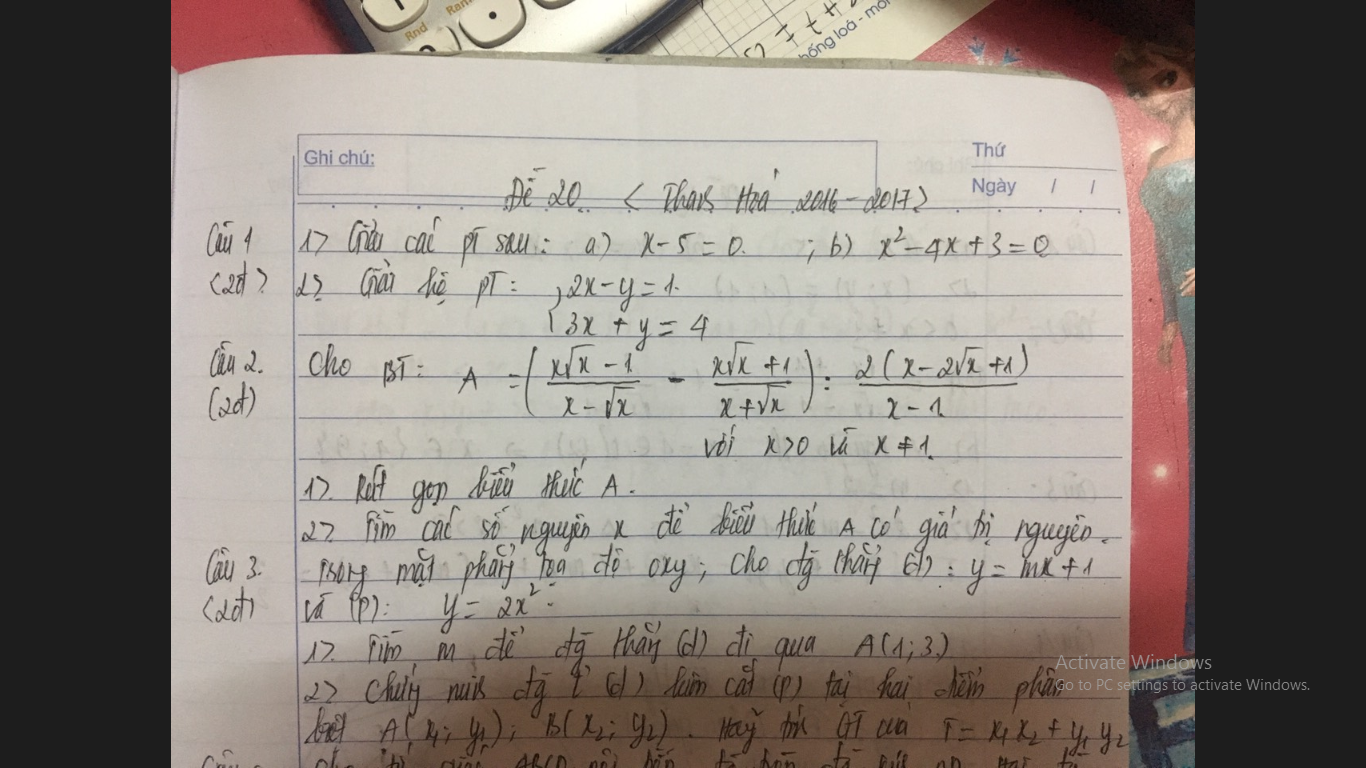 Rnd Ran
hống loá - mỏi
Ghi chú:
Thứ
Ngày / /
Đề 20 < Thanh Hoá 2016 - 2017>
Câu 1 1> Giải các pt sau: a) x - 5 = 0. ; b) x² - 4x + 3 = 0
(2đ) 2> Giải hệ PT: { 2x - y = 1.
3x + y = 4
Câu 2. Cho BT: A = ( (x√x - 1)/(x - √x) - (x√x + 1)/(x + √x) ) : 2(x - 2√x + 1)/(x - 1)
(2đ)
với x>0 và x ≠ 1.
1> Rút gọn biểu thức A.
2> Tìm các số nguyên x để biểu thức A có giá trị nguyên.
Câu 3. Trong mặt phẳng tọa độ oxy, cho đg thẳng (d): y = mx + 1
(2đ) và (P): y = 2x².
1> Tìm m để đg thẳng (d) đi qua A(1; 3)
2> Chứng minh đg t (d) luôn cắt (P) tại hai điểm phân
biệt A(x₁; y₁); B(x₂; y₂). Hãy tính GT của T = x₁x₂ + y₁y₂
Activate Windows
Go to PC settings to activate Windows.